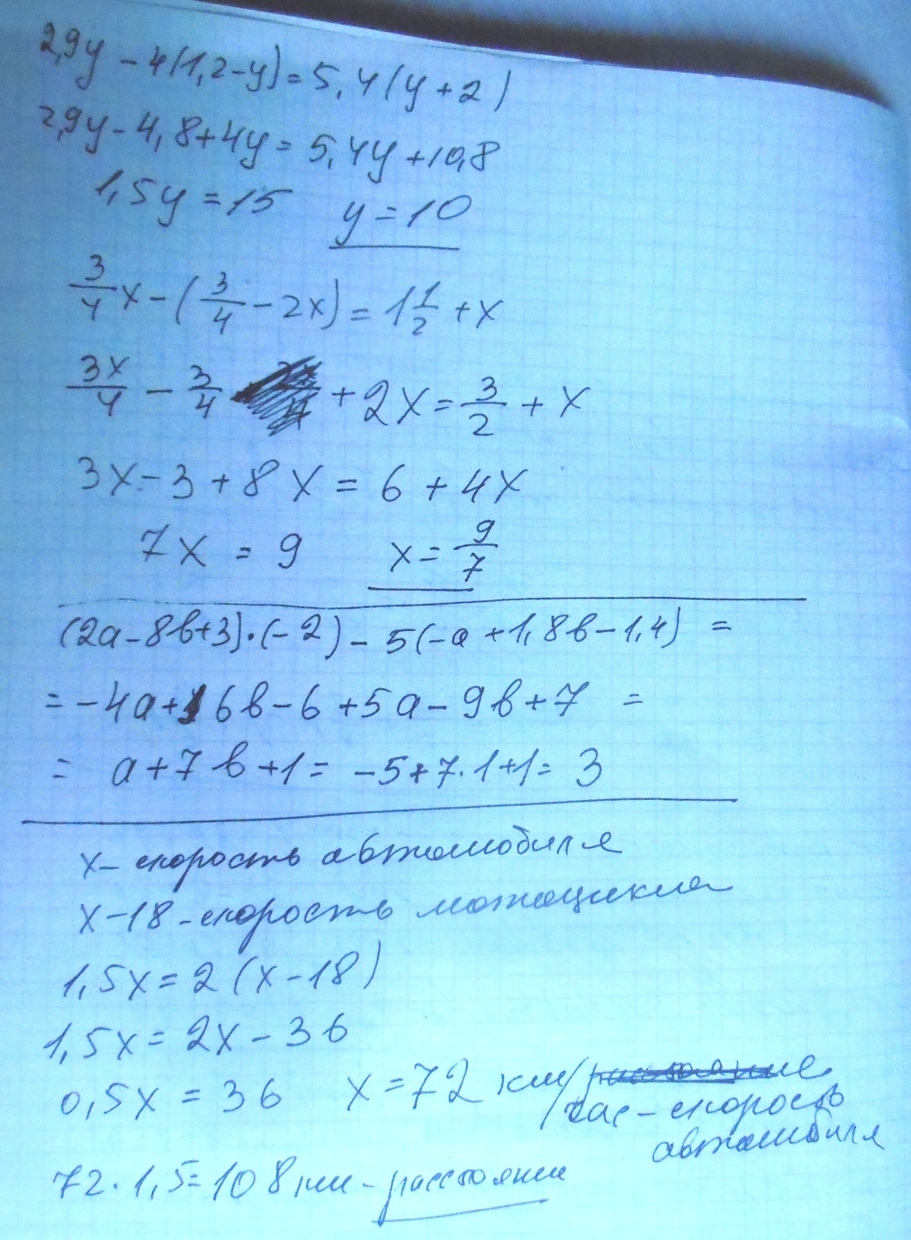 2,9y - 4(1,2-y) = 5,4(y+2)
2,9y - 4,8 + 4y = 5,4y + 10,8
1,5y = 15 y = 10
3/4 x - (3/4 - 2x) = 1 1/2 + x
3x/4 - 3/4 + 2x = 3/2 + x
3x - 3 + 8x = 6 + 4x
7x = 9 x = 9/7
(2a - 8b + 3)·(-2) - 5(-a + 1,8b - 1,4) =
= -4a + 16b - 6 + 5a - 9b + 7 =
= a + 7b + 1 = -5 + 7·1 + 1 = 3
x - скорость автомобиля
x - 18 - скорость мотоцикла
1,5x = 2(x - 18)
1,5x = 2x - 36
0,5x = 36 x = 72 км/
час - скорость
автомобиля
72·1,5 = 108 км - расстояние